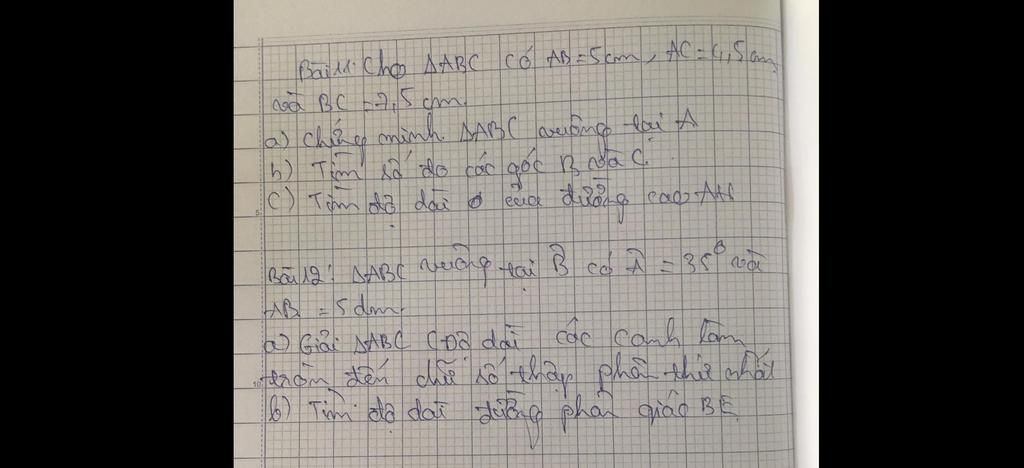 Bài 11: Cho ΔABC có AB = 5 cm, AC = 4,5 cm
và BC = 7,5 cm.
a) Chứng minh ΔABC vuông tại A
b) Tìm số đo các góc B và C.
c) Tìm độ dài của đường cao AH
Bài 12: ΔABC vuông tại B có Â = 35° và
AB = 5 dm.
a) Giải ΔABC (Độ dài các cạnh làm
tròn đến chữ số thập phân thứ nhất
b) Tìm độ dài đường phân giác BE